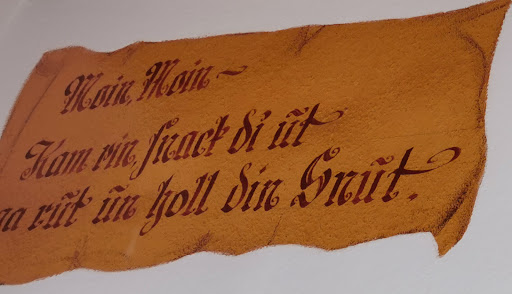 Moin, Moin ~
Kam rin, snack di ut
rut un holl din Snut.